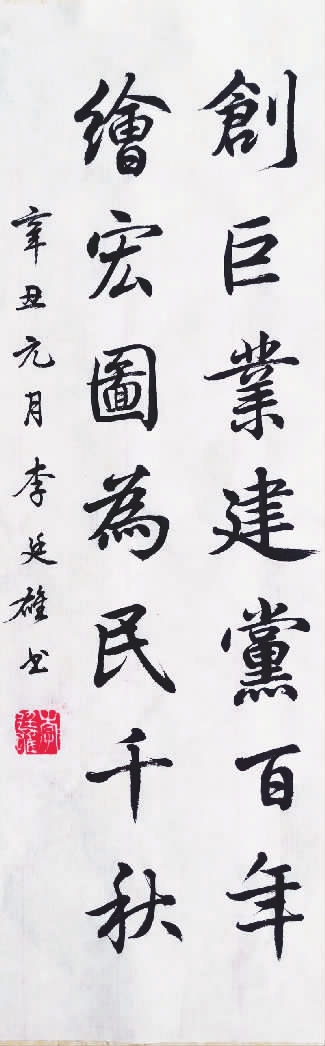 創巨業建黨百年
繪宏圖為民千秋
辛丑元月李廷雄书